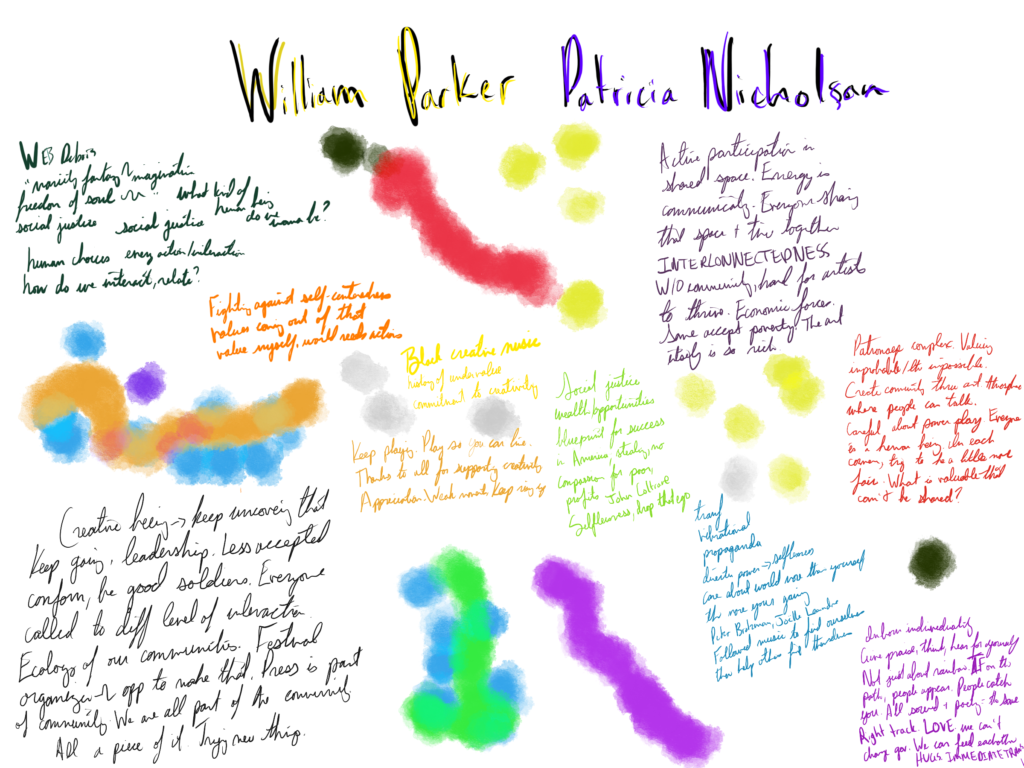 William Parker Patricia Nicholson
WEB Dubois
freedom of soul
social justice social justice
what kind of
human being
do we wanna be?
human choices every action/interaction
how do we interact, relate?
Fighting against self-centeredness
values coming out of that
value myself, world needs actions
Black creative music
history of undervalue
commitment to creativity
Keep playing. Play so you can live.
Thanks to all for supporting creativity
Appreciation. Keep
Social justice
wealth/opportunities
blueprint for success
in America, stealing, no
compassion for poor,
profits. John Coltrane
Selflessness, drop that ego
Active participation in
shared space. Energy is
communicating. Everyone sharing
this space + time together
INTERCONNECTEDNESS
W/O community, hard for artists
to thrive. Economic forces.
Some accept poverty. The art
itself is so rich.
Patronage complex. Valuing
improbable/the impossible.
Create community three art
where people can talk.
Careful about power play. Everyone
is a human being. In each
corner, try to be a little more
fair. What is valuable that
can't be shared?
Creative being → keep uncovering that
Keep going, leadership. Less accepted
conform, be good soldiers. Everyone
called to diff level of interaction.
Ecology of our communities. Festival
organizer opp to make that. Press is part
of community. We are all part of the community
All a piece of it. Trying new things.
vibrational
propaganda
power → selflessness
care about world more than yourself
the more you
Peter Joëlle Leandre
Followed music to find ourselves
then help others find themselves
individuality
praise, think, hear for yourself
Not just about rainbow. IF on the
path, people appear. People catch
you. All sound + poetry - the same
Right track. LOVE we can't
change gov. We can feed each other
HUGS. IMMEDIATE